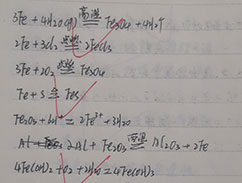 3Fe + 4H₂O(g) 高温 Fe₃O₄ + 4H₂↑
2Fe + 3Cl₂ 点燃 2FeCl₃
3Fe + 2O₂ 点燃 Fe₃O₄
Fe + S ≜ FeS
Fe₂O₃ + 6H⁺ = 2Fe³⁺ + 3H₂O
2Al + Fe₂O₃ 高温 Al₂O₃ + 2Fe
4Fe(OH)₂ + O₂ + 2H₂O = 4Fe(OH)₃